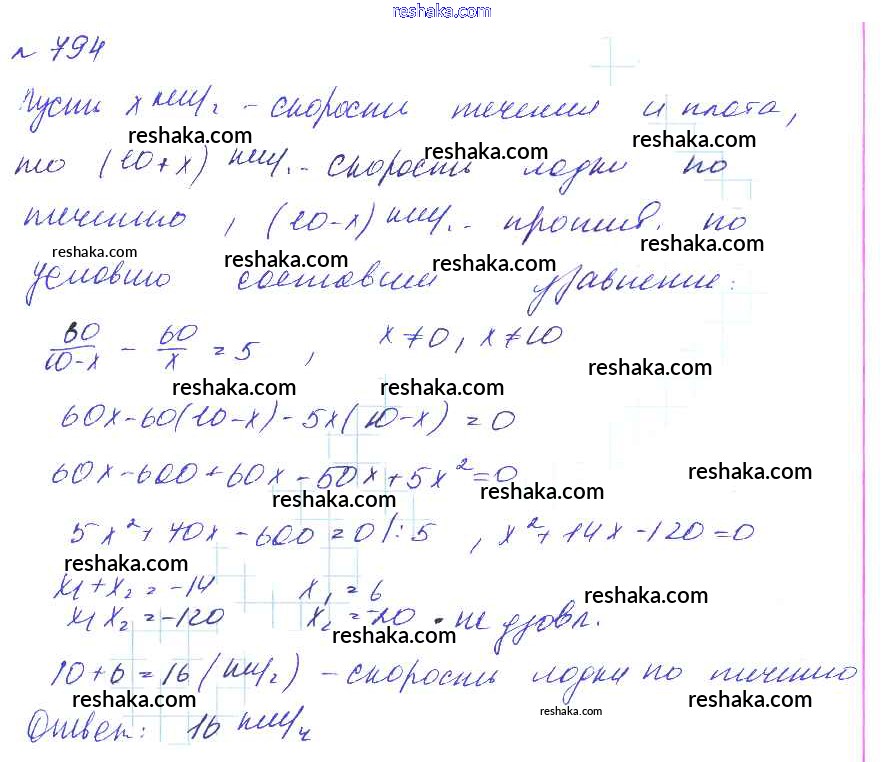 reshaka.com
№ 794
Пусть x км/ч - скорость течения и плота,
reshaka.com reshaka.com
то (10+x) км/ч - скорость лодки по
reshaka.com
течению, (10-x) км/ч - против. по
reshaka.com reshaka.com reshaka.com reshaka.com
условию составим уравнение:
60/10-x - 60/x = 5, x≠0, x≠10
reshaka.com
reshaka.com reshaka.com
60x-60(10-x)-5x(10-x)=0
60x-600+60x-50x+5x²=0
reshaka.com
reshaka.com reshaka.com
5x²+70x-600=0 |:5, x²+14x-120=0
reshaka.com
x₁+x₂=-14 x₁=6
reshaka.com
x₁x₂=-120 x₂=-20 - не удовл.
reshaka.com
10+6=16 (км/ч) - скорость лодки по течению
reshaka.com reshaka.com reshaka.com
Ответ: 16 км/ч